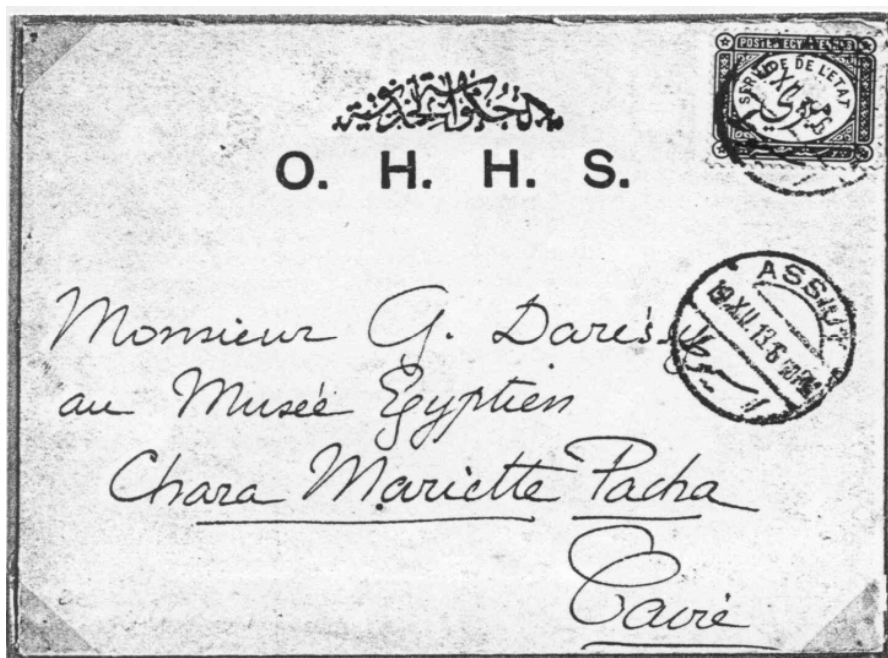 POSTES EGYPTIENNES
SERVICE DE L'ETAT
O. H. H. S.
ASSIUT
19.XII.13.6
Monsieur G. Daressy
au Musée Egyptien
Chara Mariette Pacha
Caire